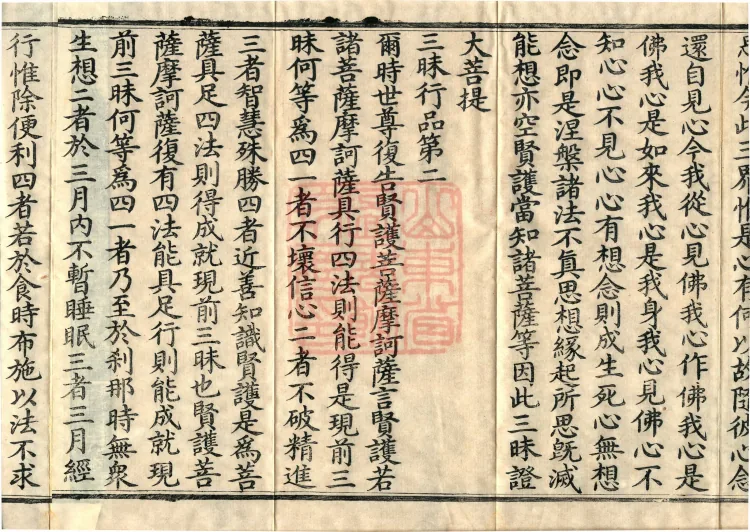 惟今此三界惟是心有何以故隨彼心念
還自見心今我從心見佛我心作佛我心是
佛我心是如來我心是我身我心見佛心不
知心心不見心心有想念則成生死心無想
念即是涅槃諸法不真思想緣起所思既滅
能想亦空賢護當知諸菩薩等因此三昧證
大菩提
三昧行品第二
爾時世尊復告賢護菩薩摩訶薩言賢護若
諸菩薩摩訶薩具行四法則能得是現前三
昧何等爲四一者不壞信心二者不破精進
三者智慧殊勝四者近善知識賢護是爲菩
薩具足四法則得成就現前三昧也賢護菩
薩摩訶薩復有四法能具足行則能成就現
前三昧何等爲四一者乃至於刹那時無衆
生想二者於三月內不暫睡眠三者三月經
行惟除便利四者若於食時布施以法不求
山東省